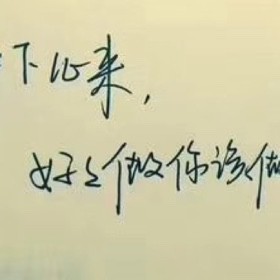 下心来，
好々做你该做